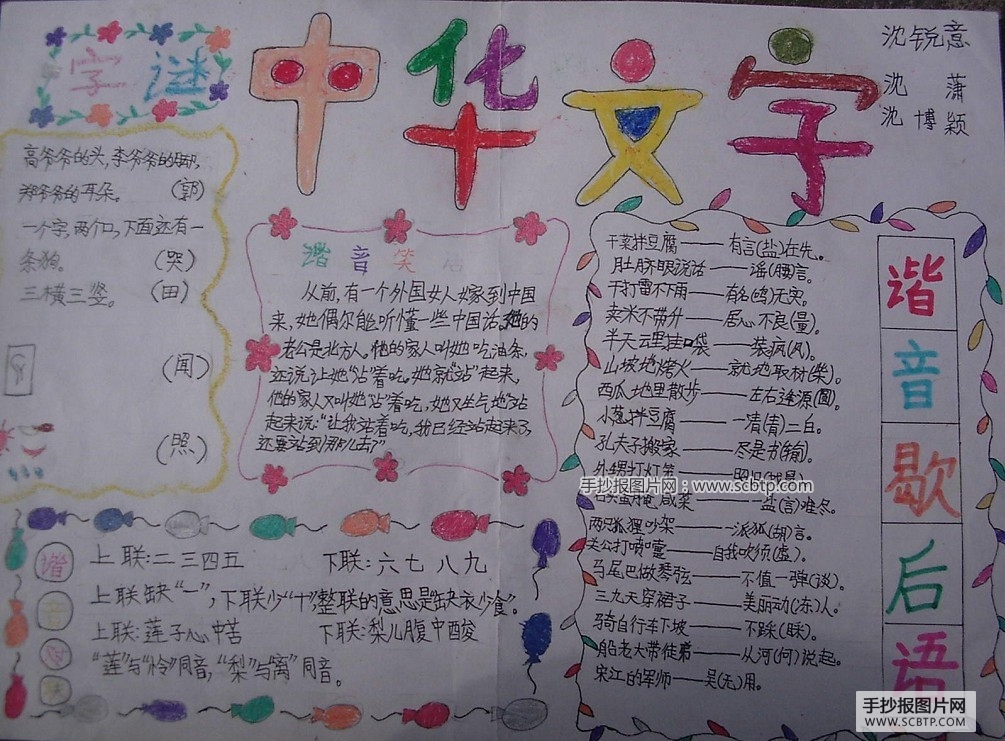 中华文字
沈锐意
沈 潇
沈博颖
字谜
高爷爷的头,李爷爷的脚,
郑爷爷的耳朵。 (郭)
一个字,两个口,下面还有一
条狗。 (哭)
三横三竖。 (田)
(闻)
(照)
谐音笑话
从前,有一个外国女人嫁到中国
来,她偶尔能听懂一些中国话。她的
老公是北方人。他的家人叫她吃油条,
还说让她“沾”着吃。她就“站”起来,
他的家人又叫她“沾”着吃,她又生气地“站
起来说:“让我站着吃,我已经站起来了,
还要站到那儿去?”
谐音歇后语
干菜拌豆腐——有言(盐)在先。
肚脐眼说话——谣(腰)言。
干打雷不下雨——有名(鸣)无实。
卖米不带升——居心不良(量)。
半天云里挂口袋——装疯(风)。
山坡地烧火——就地取材(柴)。
西瓜地里散步——左右逢源(圆)。
小葱拌豆腐——一清(青)二白。
孔夫子搬家——尽是书(输)。
外甥打灯笼——照旧
手抄报图片网:www.scbtp.com
腌咸菜——一盐(言)难尽。
两只狐狸吵架——一派狐(胡)言。
关公打喷嚏——自我吹须(虚)。
马尾巴做琴弦——不值一弹(谈)。
三九天穿裙子——美丽动(冻)人。
骑自行车下坡——不踩(睬)。
船老大带徒弟——从河(何)说起。
宋江的军师——吴(无)用。
谐音
上联:二三四五 下联:六七八九
上联缺“一”,下联少“十”整联的意思是“缺衣少食”。
上联:莲子心中苦 下联:梨儿腹中酸
“莲”与“怜”同音,“梨”与“离”同音。
手抄报图片网
WWW.SCBTP.COM